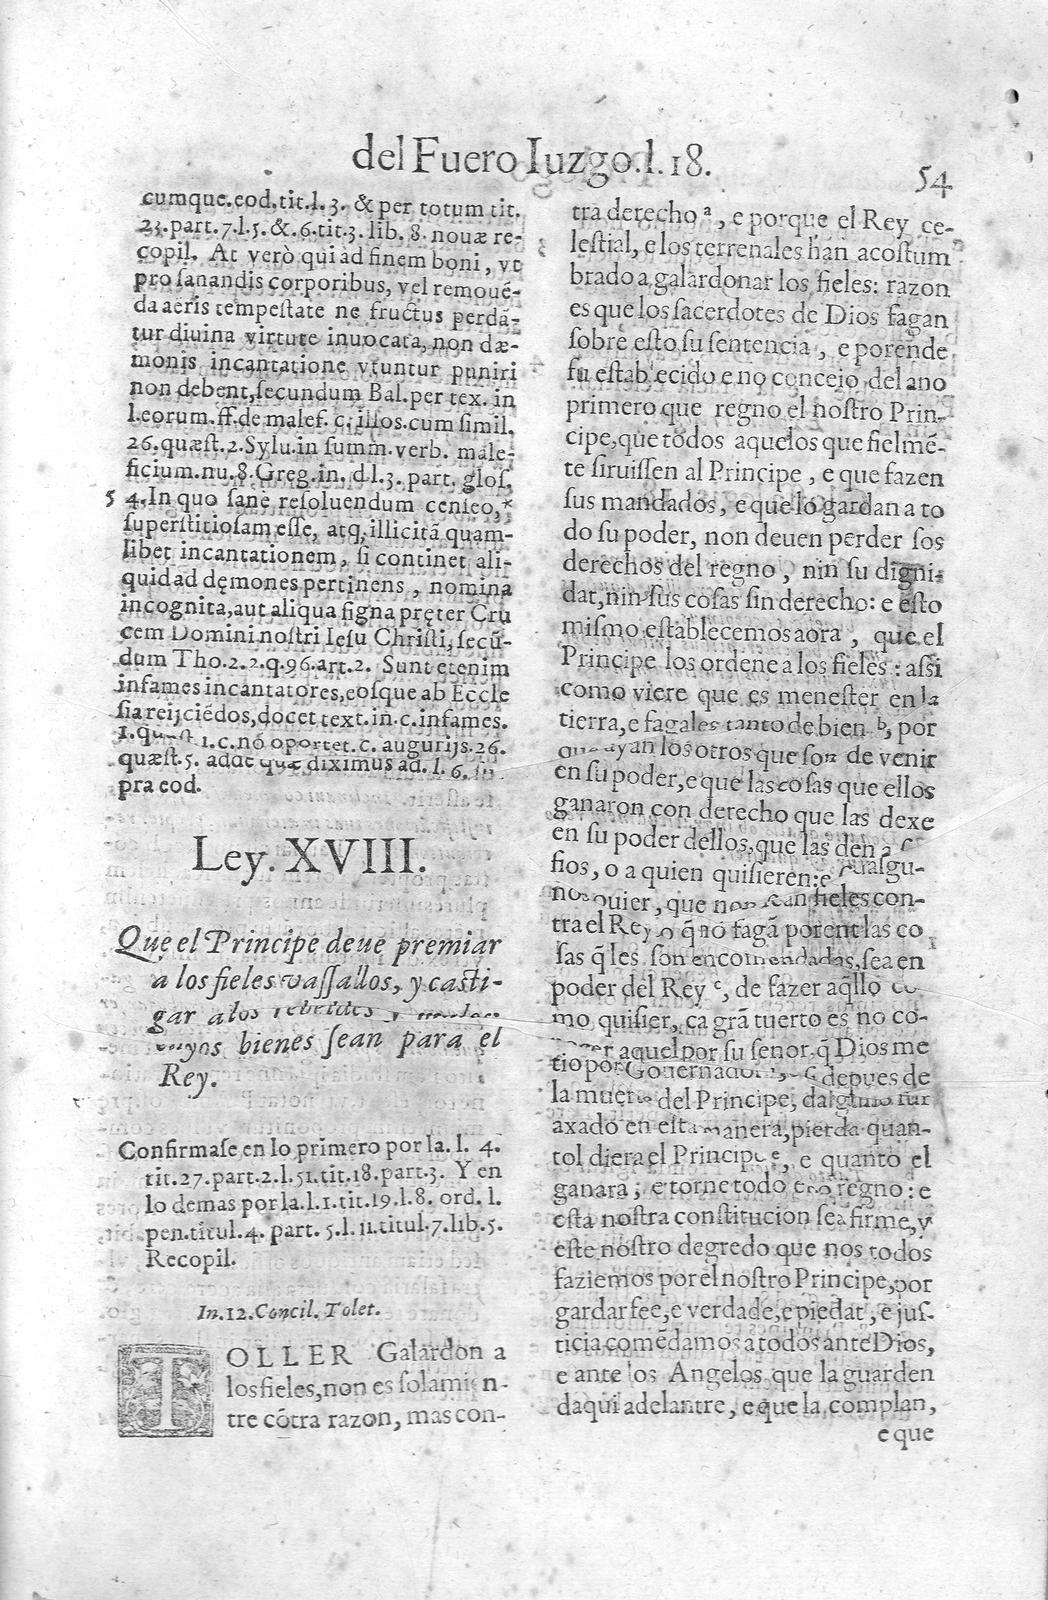 del Fuero Iuzgo.l.18.
54
cumque.eod.tit.l.3. & per totum tit.
23.part.7.l.5.&.6.tit.3.lib.8.nouæ re-
copil. At verò qui ad finem boni, vt
pro sanandis corporibus, vel remoué-
da aeris tempestate ne fructus perdã-
tur diuina virtute inuocata, non dæ-
monis incantatione vtuntur puniri
non debent, secundum Bal. per tex. in
l.eorum.ff.de malef.c.illos.cum simil.
26.quæst.2.Sylu.in summ.verb. male-
ficium.nu.8.Greg.in.d.l.3.part.glos.
5 4.In quo sanè resoluendum censeo,*
superstitiosam esse, atq, illicitã quam-
libet incantationem, si continet ali-
quid ad dęmones pertinens, nomina
incognita, aut aliqua signa pręter Cru
cem Domini nostri Iesu Christi, secũ-
dum Tho.2.2.q.96.art.2. Sunt etenim
infames incantatores, eosque ab Eccle
sia reijciédos, docet text.in.c.infames.
1. 1.c.nó oportet.c. augurijs.26.
quæst.5. adde quæ diximus ad.l.6.
pra eod.
Ley. XVIII.
Que el Principe deue premiar
a los fieles vassallos, y casti-
gar a los rebeldes
bienes sean para el
Rey.
Confirmase en lo primero por la.l. 4.
tit.27.part.2.l.51.tit.18.part.3. Y en
lo demas por la.l.1.tit.19.l.8. ord.l.
pen.titul.4. part. 5.l.11.titul.7.lib.5.
Recopil.
In.12.Concil.Tolet.
TOLLER Galardon a
los fieles, non es solamien-
tre cõtra razon, mas con-
tra derecho ª, e porque el Rey ce-
lestial, e los terrenales han acostum
brado a galardonar los fieles: razon
es que los sacerdotes de Dios fagan
sobre esto su sentencia, e porende
fu establecido eno concejo del ano
primero que regno el nostro Prin-
cipe, que todos aquelos que fielmẽ-
te siruissen al Principe, e que fazen
sus mandados, e que lo gardan a to
do su poder, non deuen perder sos
derechos del regno, nin su digni-
dat, nin sus cosas sin derecho: e esto
mismo establecemos aora, que el
Principe los ordene a los fieles: assi
como viere que es menester en la
tierra, e fagales tanto de bien ᵇ, por
que ayan los otros que son de venir
en su poder, e que las cosas que ellos
ganaron con derecho que las dexe
en su poder dellos, que las den a
fios, o a quien quisieren: e
quier, que non sean fieles con-
tra el Rey, o q̃ no fagã porent las co
sas q̃ les son encomendadas, sea en
poder del Rey ᶜ, de fazer aq̃llo co-
mo quisier, ca grã tuerto es no co-
aquel por su senor, q̃ Dios me
tio por Gouernador, depues de
la muerte del Principe,
axado en esta manera, pierda quan-
tol diera el Principe ᵉ, e quanto el
ganara; e torne todo eno regno: e
esta nostra constitucion sea firme, y
este nostro degredo que nos todos
faziemos por el nostro Principe, por
gardar fee, e verdade, e piedat, e jus-
ticia comẽdamos a todos ante Dios,
e ante los Angelos que la guarden
daqui adelantre, e que la complan,
e que